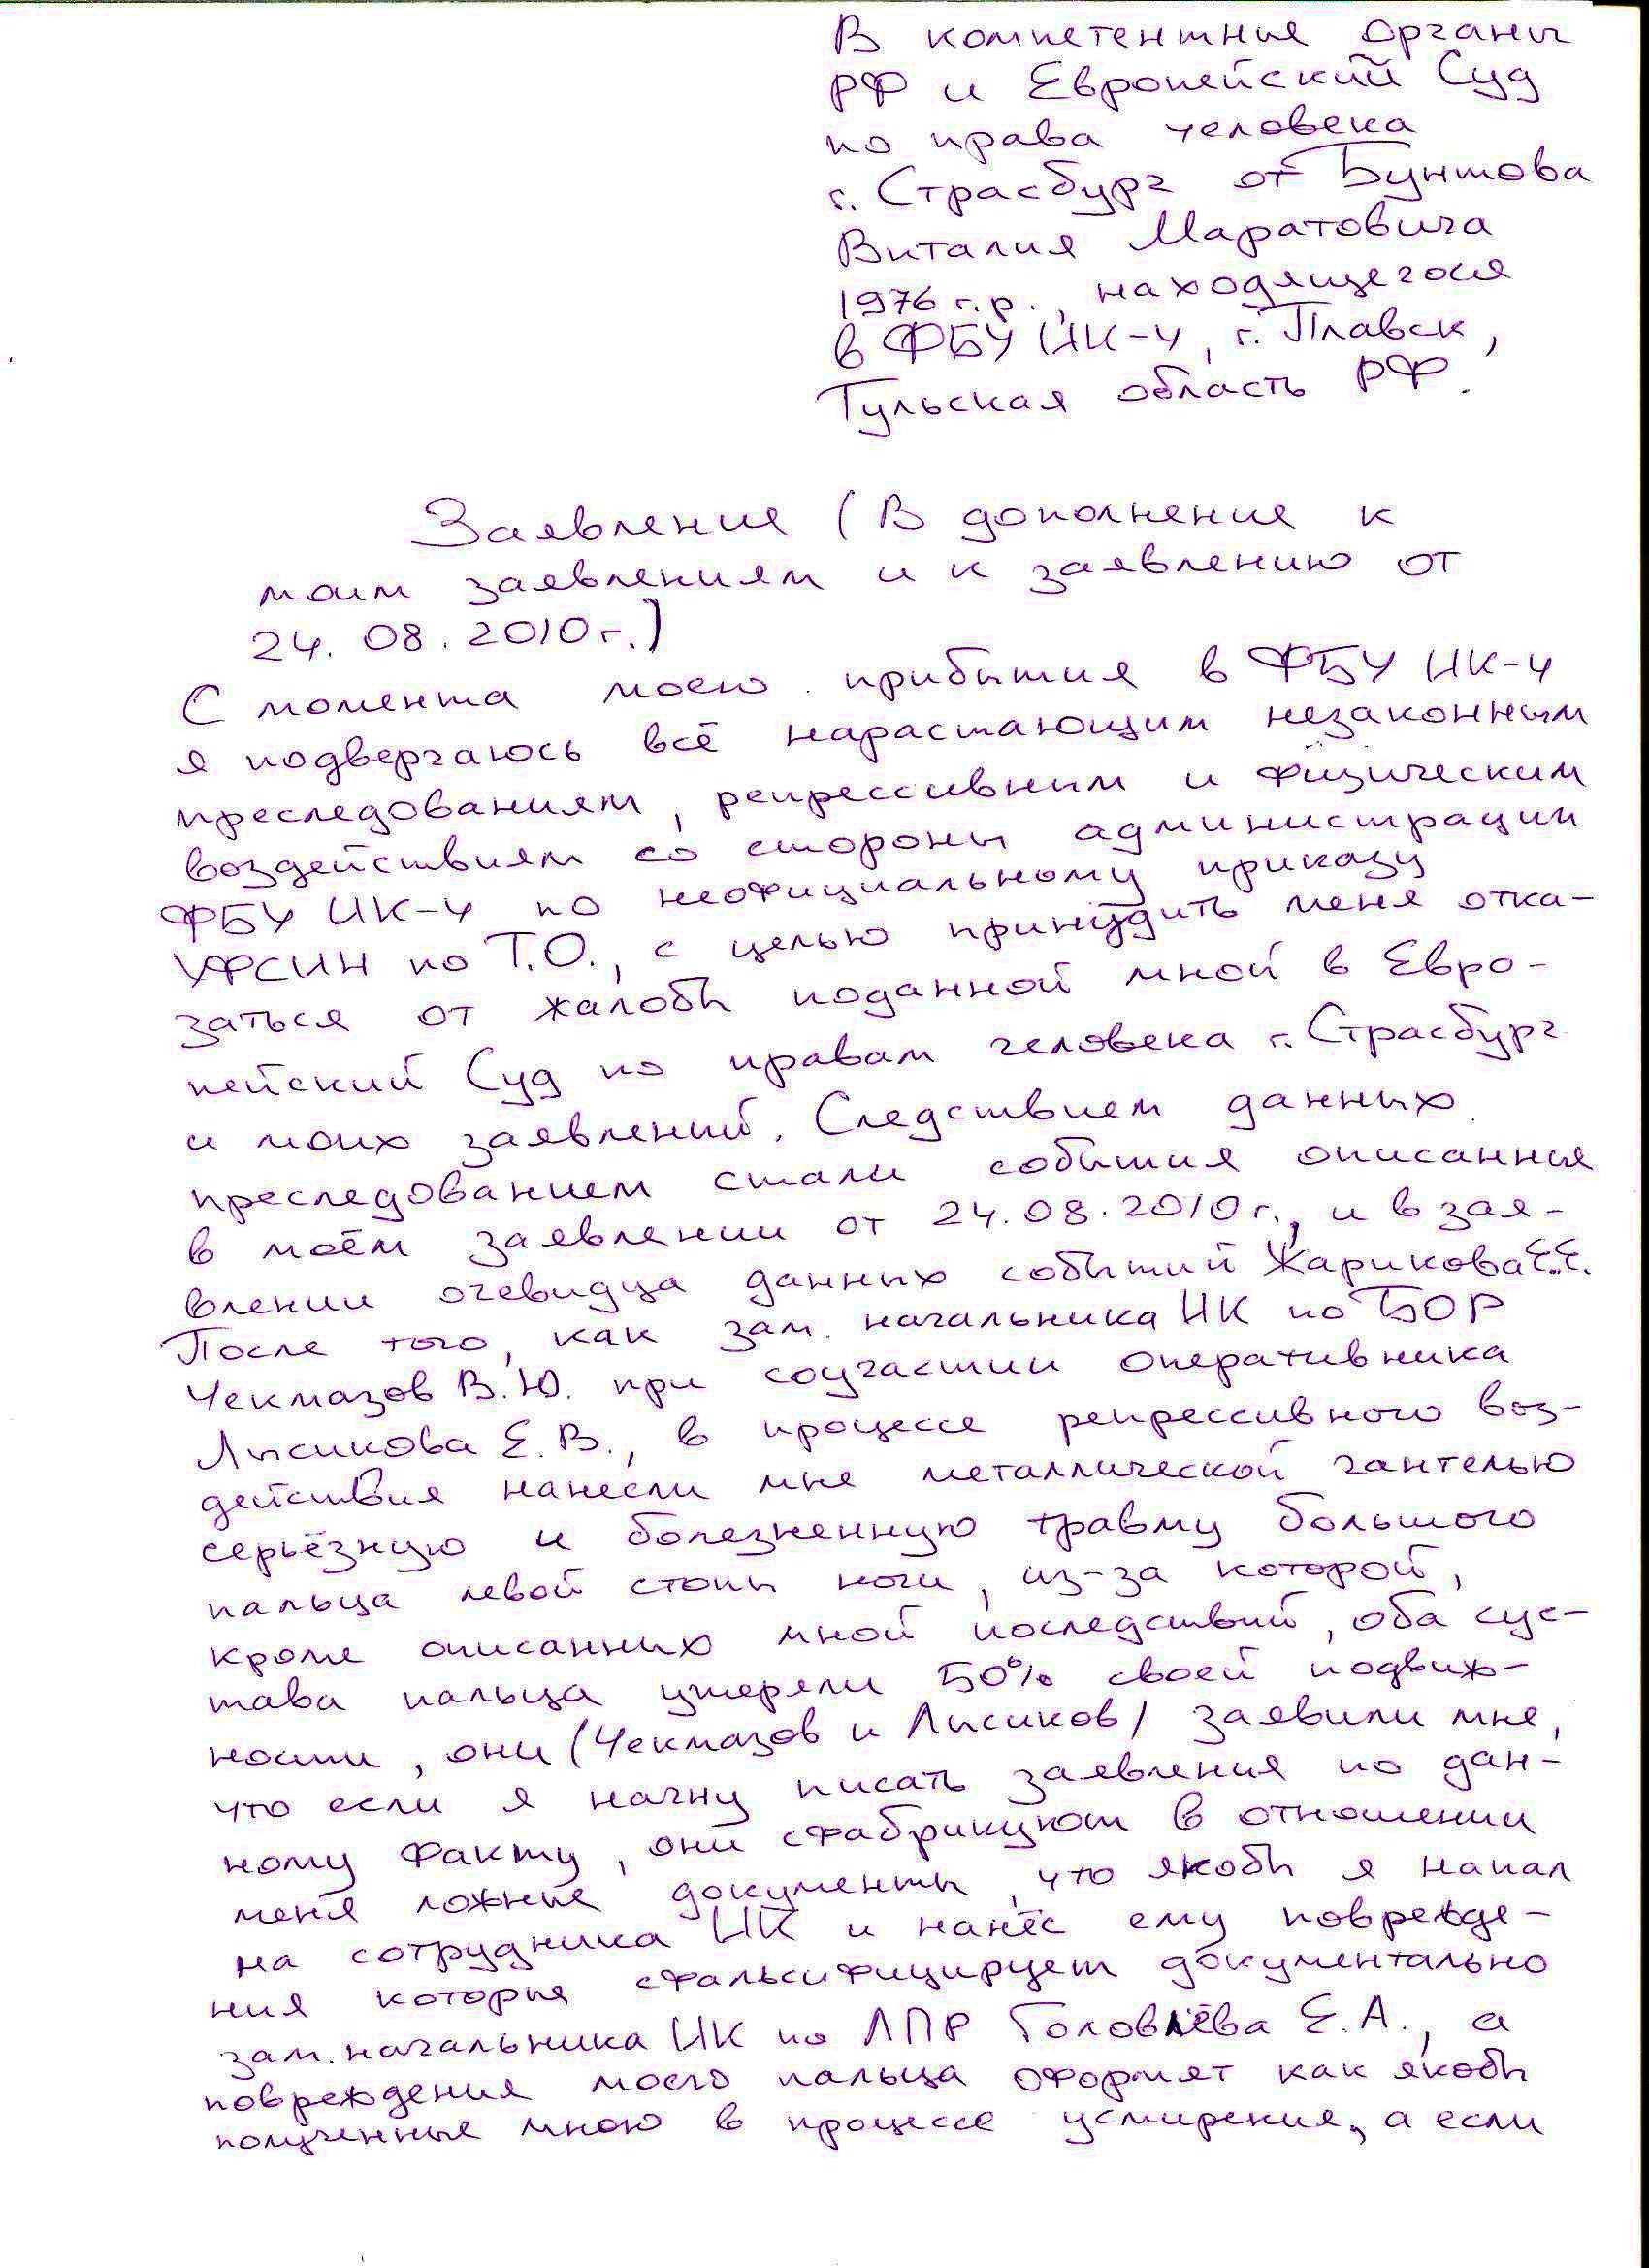 В компетентные органы
РФ и Европейский Суд
по права человека
г. Страсбург от Бунтова
Виталия Маратовича
1976 г.р., находящегося
в ФБУ ИК-4, г. Плавск,
Тульская область РФ.
Заявление (В дополнение к
моим заявлениям и к заявлению от
24.08.2010г.)
С момента моего прибытия в ФБУ ИК-4
я подвергаюсь всё нарастающим незаконным
преследованиям, репрессивным и физическим
воздействиям со стороны администрации
ФБУ ИК-4 по неофициальному приказу
УФСИН по Т.О., с целью принудить меня отка-
заться от жалобы поданной мной в Евро-
пейский Суд по правам человека г. Страсбург
и моих заявлений. Следствием данных
преследованием стали события описанные
в моём заявлении от 24.08.2010г., и в зая-
влении очевидца данных событий Жарикова Е.Е.
После того, как зам. начальника ИК по БОР
Чекмазов В.Ю. при соучастии оперативника
Лысикова Е.В., в процессе репрессивного воз-
действия нанесли мне металлической гантелью
серьёзную и болезненную травму большого
пальца левой стопы ноги, из-за которой,
кроме описанных мной последствий, оба сус-
тава пальца утеряли 50% своей подвиж-
ности, они (Чекмазов и Лысиков) заявили мне,
что если я начну писать заявления по дан-
ному факту, они сфабрикуют в отношении
меня ложные документы, что якобы я напал
на сотрудника ИК и нанёс ему поврежде-
ния которые сфальсифицирует документально
зам. начальника ИК по ЛПР Головлёва Е.А., а
повреждения моего пальца оформят как якобы
полученные мною в процессе усмирения, а если